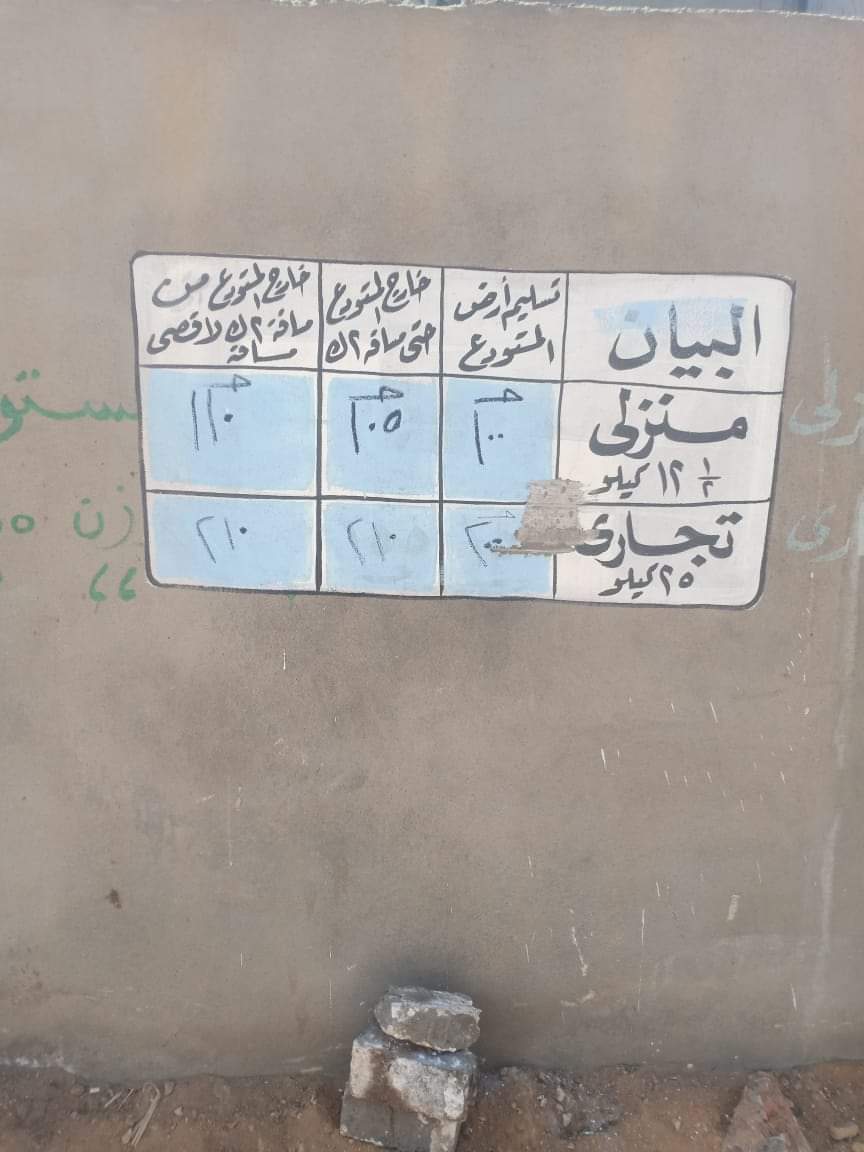 البيان
تسليم أرض
المستودع
خارج المستودع
حتى مسافة ٢ ك
خارج المستودع من
مسافة ٢ ك لاقصى
مسافة
منزلى
١٢ ١/٢ كيلو
جـ ١٠٠
جـ ١٠٥
جـ ١١٠
تجارى
٢٥ كيلو
٢٠٠
٢١٠
٢١٠